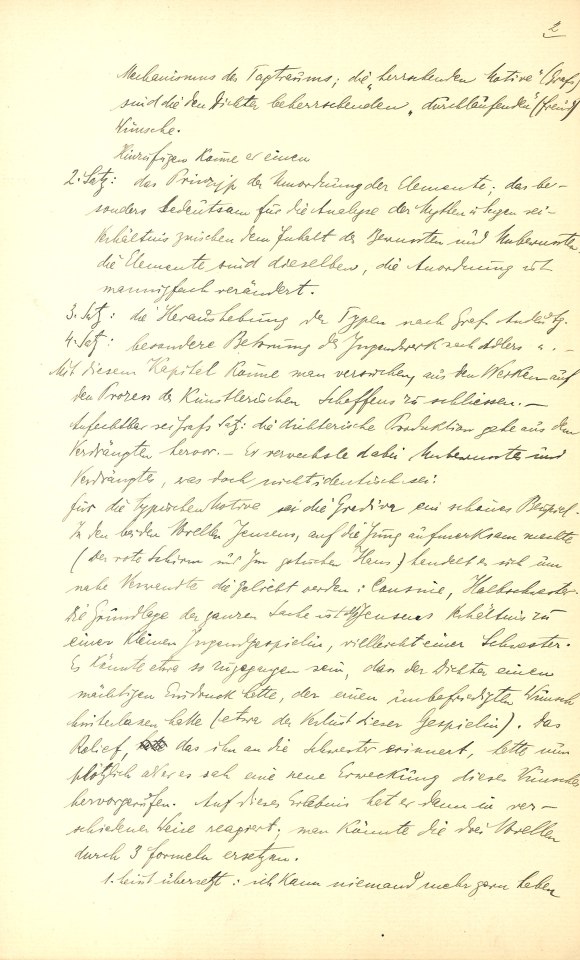 2
Mechanismus des Tagtraums; die „herrschenden Motive“ (Graf)
sind die den Dichter beherrschenden „durchlaufenden“ (Freud)
Wünsche.
Hinzufügen könne er einen
2. Satz: das Prinzip der Umordnung der Elemente; das be-
sonders bedeutsam für die Analyse der Mythen u Sagen sei.-
Verhältnis zwischen dem Inhalt des Bewussten und Unbewussten.
die Elemente sind dieselben, die Anordnung ist
mannigfach verändert.
3. Satz: die Heraushebung der Typen nach Grafs Andeutg.
4. Satz: besondere Betonung der Jugendwerke nach Adlers
Mit diesem Kapitel könne man versuchen, aus den Werken auf
den Prozess des künstlerischen Schaffens zu schliessen.-
Anfechtbar sei Grafs Satz: die dichterische Produktion gehe aus dem
Verdrängten hervor.- Er verwechsle dabei Unbewusstes und
Verdrängtes, was doch nicht identisch sei.
für die typischen Motive sei die Gradiva ein schönes Beispiel.
In den beiden Novellen Jensens, auf die Jung aufmerksam machte
(Der rote Schirm und Im gotischen Haus) handelt es sich um
nahe Verwandte die geliebt werden: Cousine, Halbschwester.
Die Grundlage der ganzen Sache ist Jensens Verhältnis zu
einer kleinen Jugendgespielin, vielleicht einer Schwester.
Es könnte etwa so zugegangen sein, dass der Dichter einen
mächtigen Eindruck hatte, der einen unbefriedigten Wunsch
hinterlassen hatte (etwa der Verlust dieser Gespielin). Das
Relief, das ihn an die Schwester erinnert, hatte nun
plötzlich als er es sah eine neue Erweckung dieses Wunsches
hervorgerufen. Auf dieses Erlebnis hat er dann in ver-
schiedener Weise reagiert; man könnte die drei Novellen
durch 3 formeln ersetzen.
1. heisst übersetzt: ich kann niemand mehr gern haben